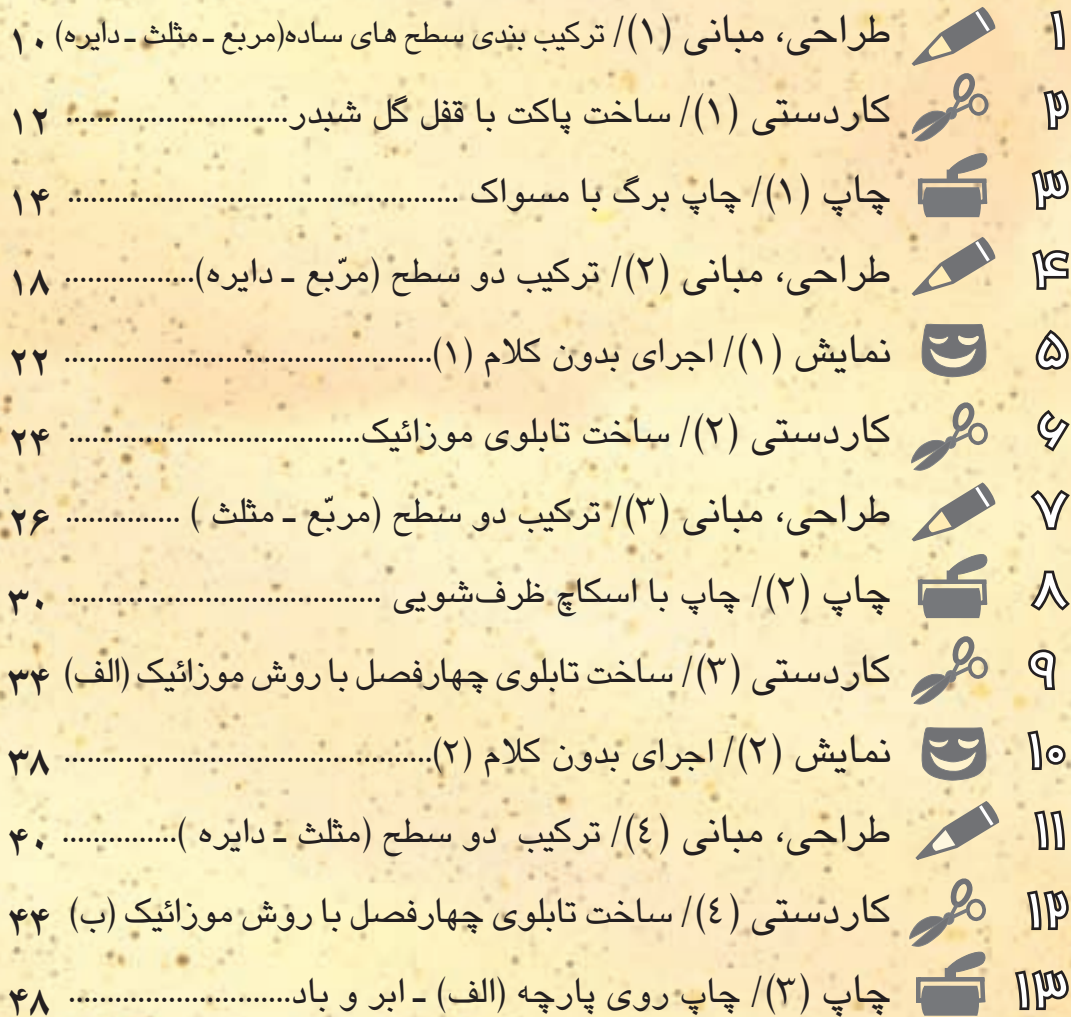 ۱ طراحی، مبانی (۱)/ ترکیب بندی سطح های ساده(مربع ـ مثلث ـ دایره) ۱۰
۲ کاردستی (۱)/ ساخت پاکت با قفل گل شبدر............................ ۱۲
۳ چاپ (۱)/ چاپ برگ با مسواک ............................................. ۱۴
۴ طراحی، مبانی (۲)/ ترکیب دو سطح (مربّع ـ دایره)................ ۱۸
۵ نمایش (۱)/ اجرای بدون کلام (۱)............................................ ۲۲
۶ کاردستی (۲)/ ساخت تابلوی موزائیک................................... ۲۴
۷ طراحی، مبانی (۳)/ ترکیب دو سطح (مربّع ـ مثلث ) ............... ۲۶
۸ چاپ (۲)/ چاپ با اسکاچ ظرف‌شویی ...................................... ۳۰
۹ کاردستی (۳)/ ساخت تابلوی چهارفصل با روش موزائیک (الف) ۳۴
۱۰ نمایش (۲)/ اجرای بدون کلام (۲)............................................ ۳۸
۱۱ طراحی، مبانی (٤)/ ترکیب دو سطح (مثلث ـ دایره )............... ۴۰
۱۲ کاردستی (٤)/ ساخت تابلوی چهارفصل با روش موزائیک (ب) ۴۴
۱۳ چاپ (۳)/ چاپ روی پارچه (الف) ـ ابر و باد.......................... ۴۸